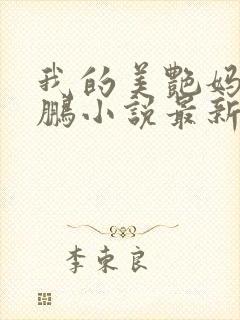 我的美艷妈
鹏小说最新
李東良